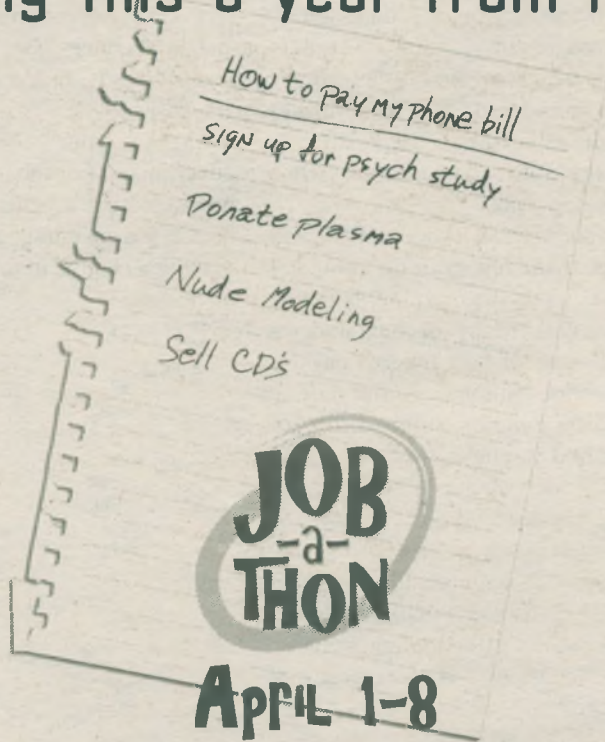 ng this a year from
How to pay my phone bill
Sign up for psych study
Donate plasma
Nude Modeling
Sell CD's
JOB
-a-
THON
April 1-8